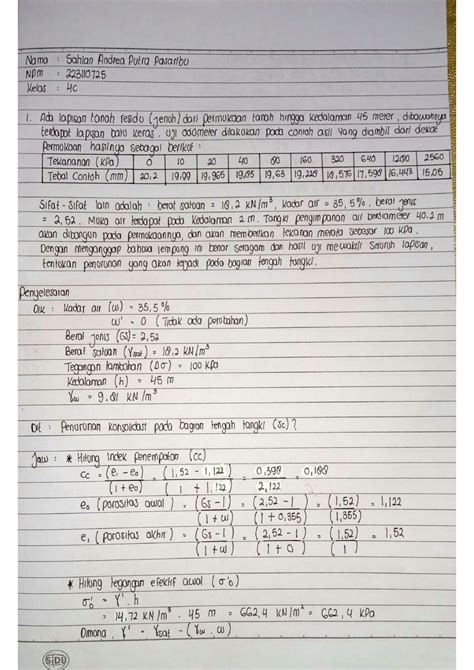 Nama : Sahlan Andrea Putra Pasaribu
NPM : 223110725
Kelas : 4C
1. Ada lapisan tanah residu (jenoh) dari permukaan tanah hingga kedalaman 45 meter, dibawahnya
terdapat lapisan batu keras. uji odometer dilakukan pada contoh asli yang diambil dari dekat
permukaan hasilnya sebagai berikut :
Tekananan (kPa) 0 10 20 40 80 160 320 640 1280 2560
Tebal Contoh (mm) 20,2 19,99 19,965 19,85 19,63 19,228 18,576 17,598 16,443 15,05
Sifat - Sifat lain adalah : berat satuan = 18,2 kN/m³, kadar air = 35,5%, berat jenis
= 2,52. Muka air terdapat pada kedalaman 2 m. Tangki penyimpanan air berdiameter 40,2 m
akan dibangun pada permukaannya, dan akan memberikan tekanan merata sebesar 100 kPa.
Dengan menganggap bahwa lempung ini benar seragam dan hasil uji mewakili seluruh lapisan,
tentukan penurunan yang akan terjadi pada bagian tengah tangki.
Penyelesaian
Dik : Kadar air (w) = 35,5 %
w' = 0 (Tidak ada perubahan)
Berat jenis (Gs) = 2,52
Berat satuan (γsat) = 18,2 kN/m³
Tegangan tambahan (Δσ) = 100 kPa
Kedalaman (h) = 45 m
γw = 9,81 kN/m³
Dit : Penurunan konsolidasi pada bagian tengah tangki (Sc) ?
Jaw : * Hitung Indek Penempatan (Cc)
Cc = (e₁ - e₀) / (1 + e₀) = (1,52 - 1,122) / (1 + 1,122) = 0,398 / 2,122 = 0,188
e₀ (porositas awal) = (Gs - 1) / (1 + w) = (2,52 - 1) / (1 + 0,355) = (1,52) / (1,355) = 1,122
e₁ (porositas akhir) = (Gs - 1) / (1 + w) = (2,52 - 1) / (1 + 0) = (1,52) / (1) = 1,52
* Hitung tegangan efektif awal (σ'₀)
σ'₀ = γ' . h
= 14,72 kN/m³ . 45 m = 662,4 kN/m² = 662,4 kPa
Dimana, γ' = γsat - (γw . w)
SiDU